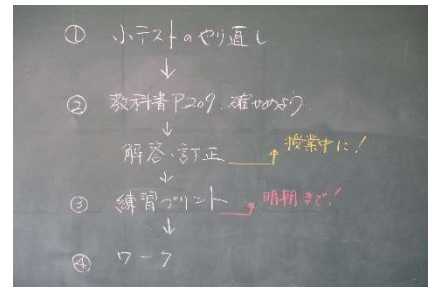 ① 小テストのやり直し
↓
② 教科書P.209 確かめよう
↓
解答・訂正 → 授業中に!
↓
③ 練習プリント → 明朝まで!
↓
④ ワーク